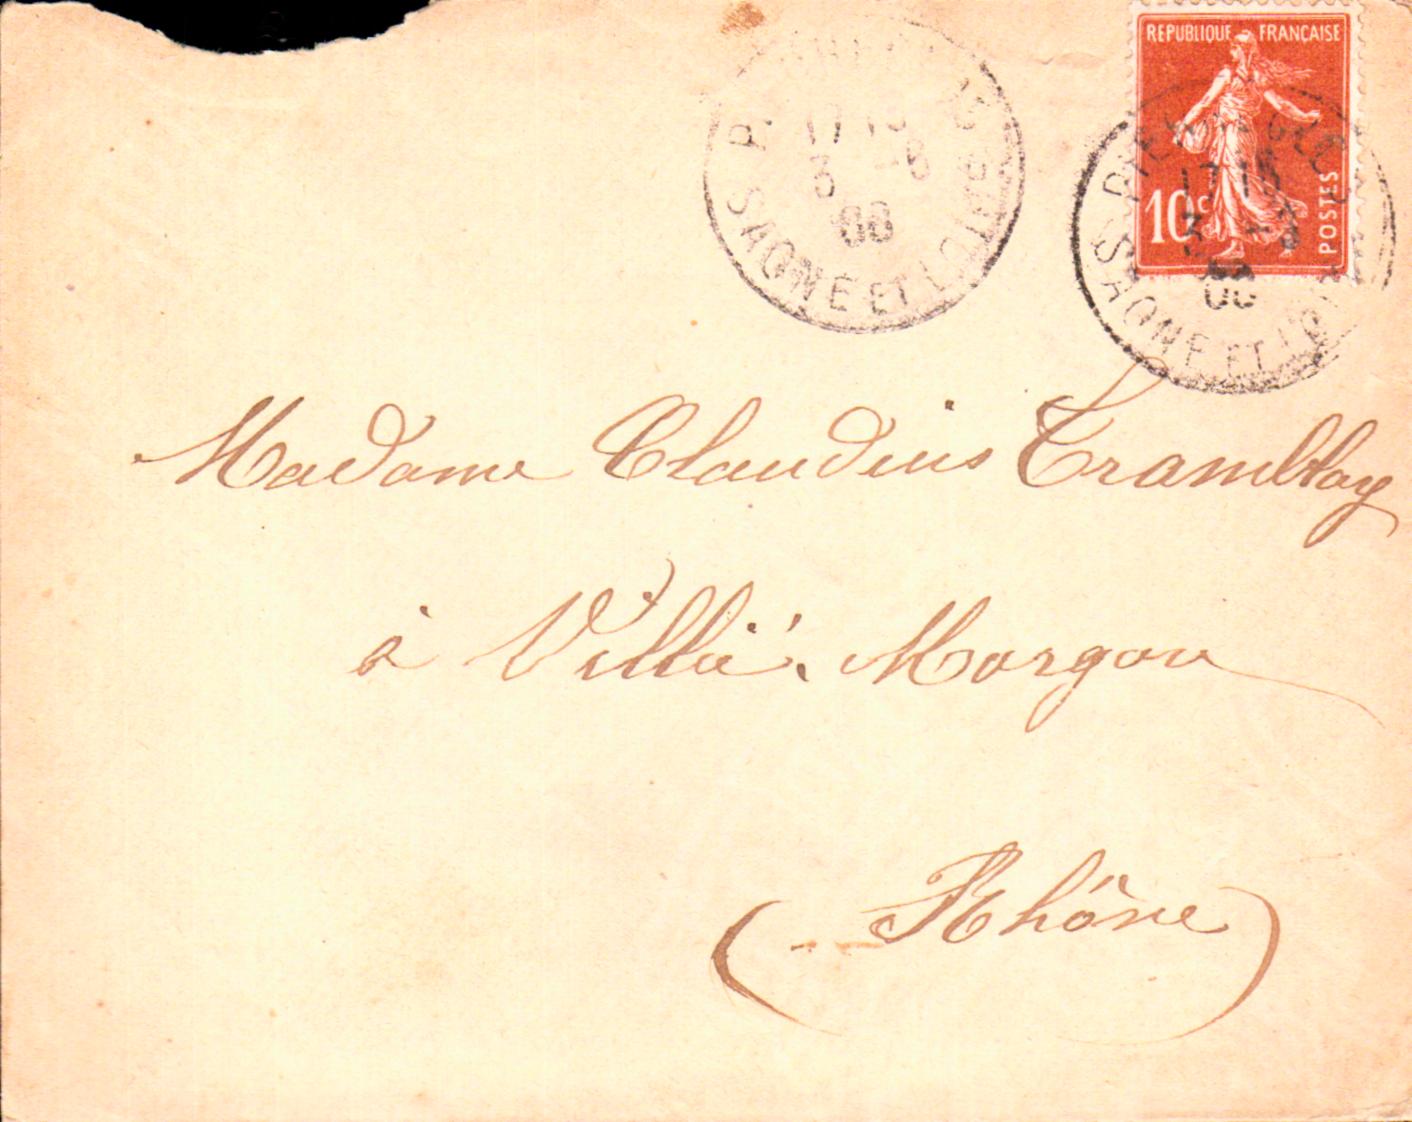 REPUBLIQUE FRANÇAISE
10c POSTES
SAONE ET LOIRE
3 -8
08
SAONE ET LOIRE
Madame Claudius Tramblay
à Villié-Morgon
(Rhône)